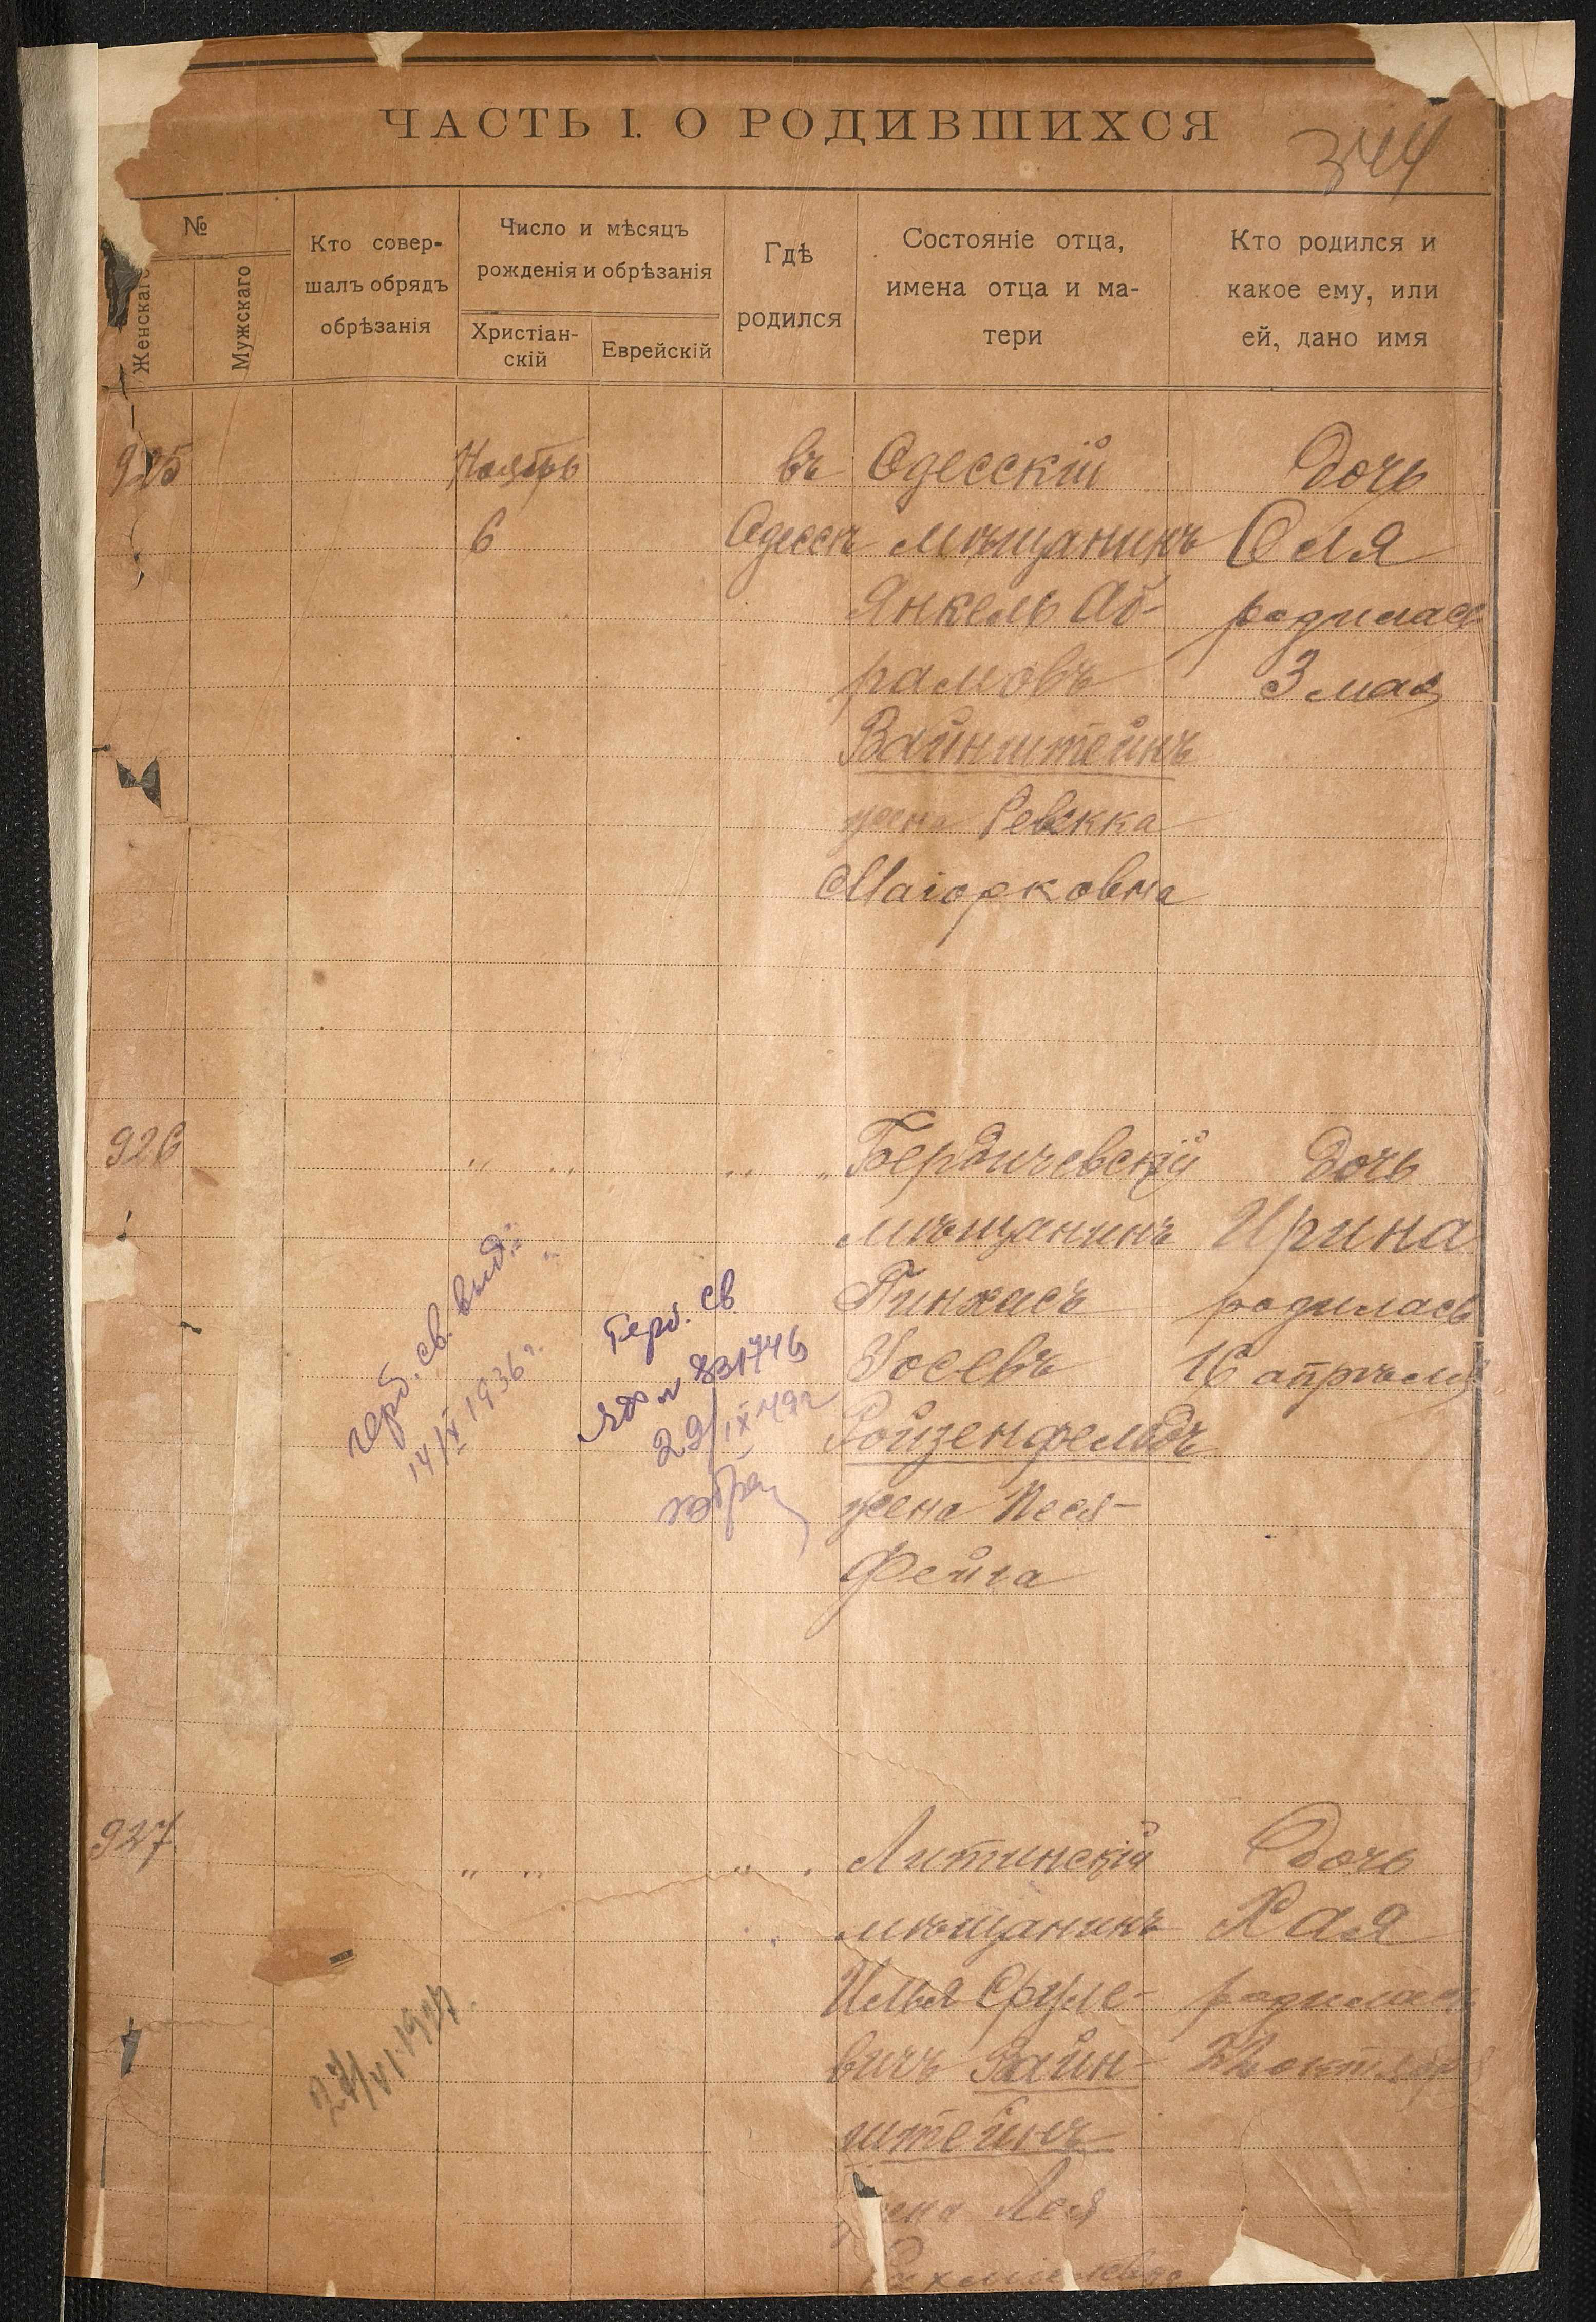 ЧАСТЬ I. О РОДИВШИХСЯ
344
№
Женскаго
Мужскаго
Кто совер-
шалъ обрядъ
обрѣзанія
Число и мѣсяцъ
рожденія и обрѣзанія
Христіан-
скій
Еврейскій
Гдѣ
родился
Состояніе отца,
имена отца и ма-
тери
Кто родился и
какое ему, или
ей, дано имя
925
Ноябрь
6
въ
Одессѣ
Одесскій
мѣщанинъ
Янкель Аб-
рамовъ
Вайнштейнъ
жена Ревекка
Маіорковна
Дочь
Оля
родилась
3 мая
926
" " " "
Бердичевскій
мѣщанинъ
Пинхасъ
Іосевъ
Ройзенфельдъ
жена Песя-
Фейга
Дочь
Ирина
родилась
16 апрѣля
герб. св. выд.
14/X 1936 г.
Герб. св
ЯЮ № 831746
29/IX 49 г
927
" " "
Литинскій
мѣщанинъ
Илья Сруле-
вичъ Вайн-
штейнъ
жена Лея
Дочь
Хая
родилась
22 октября